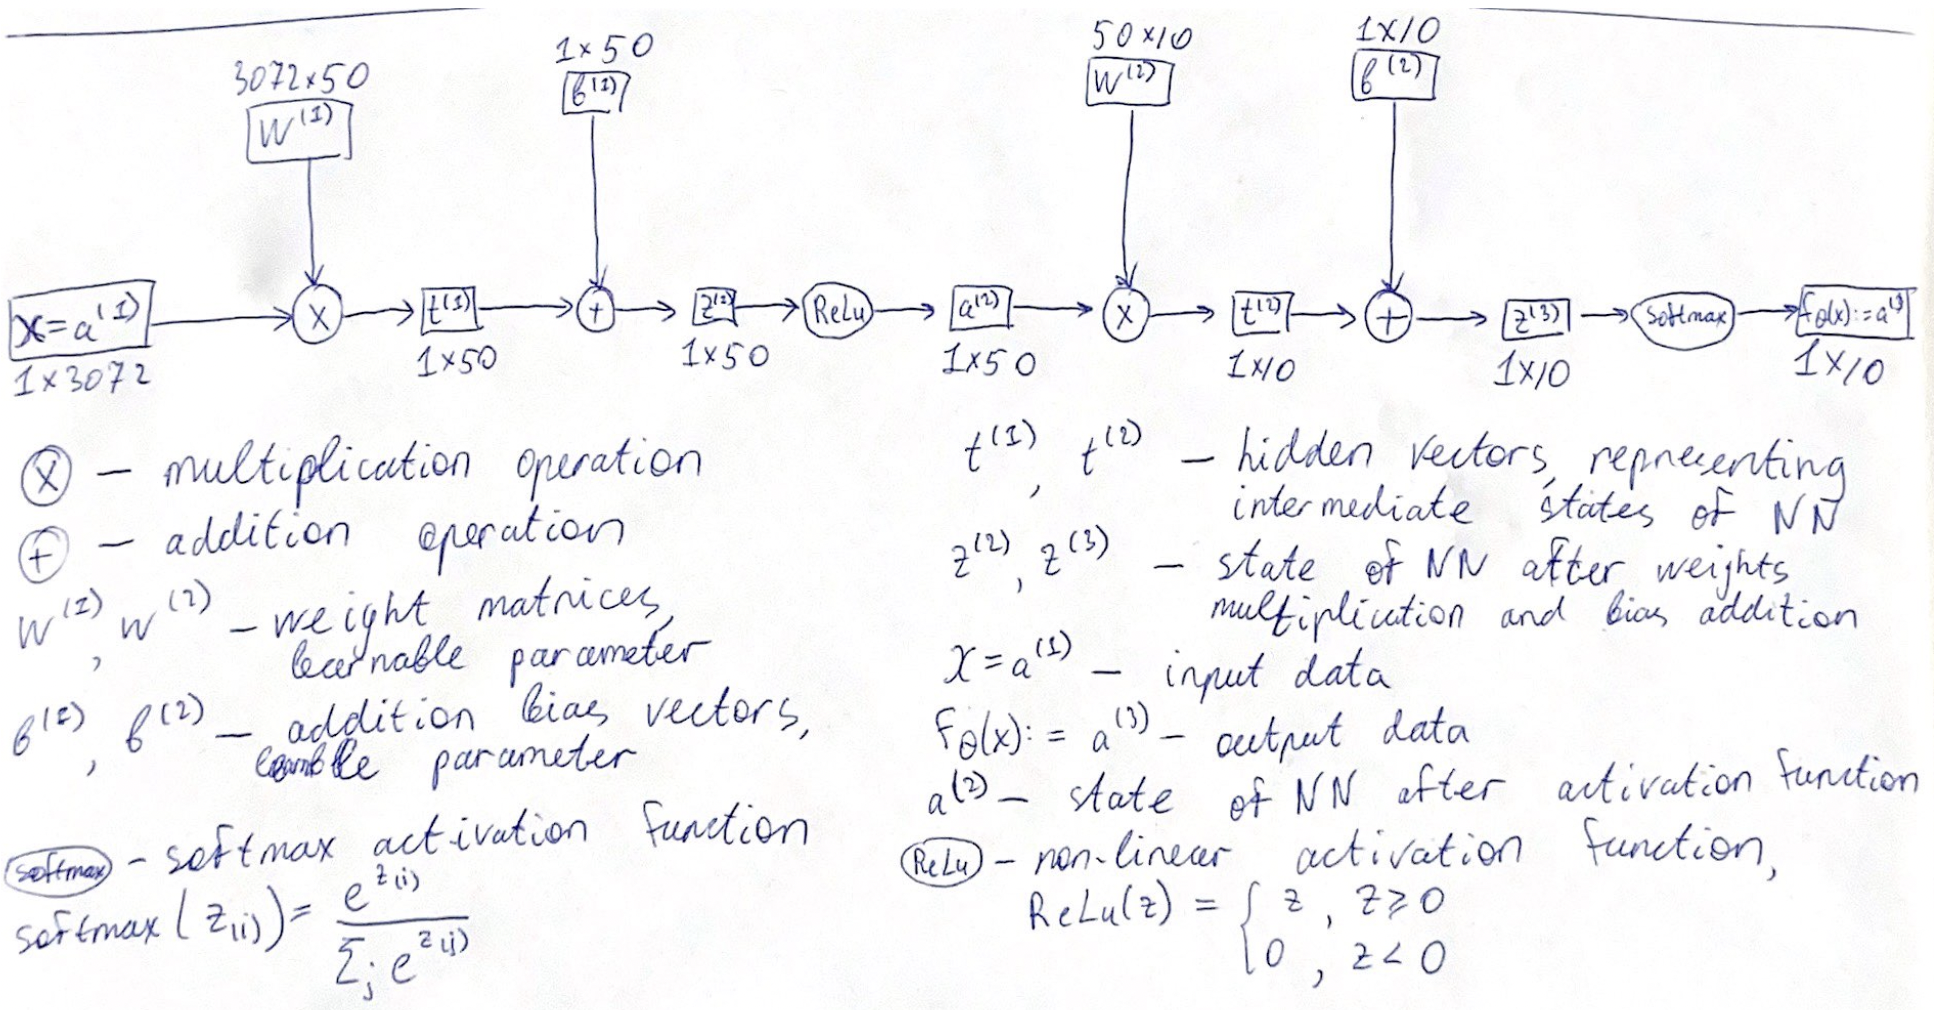 3072×50
1×50
50×10
1×10
W⁽¹⁾
b⁽¹⁾
W⁽²⁾
b⁽²⁾
x=a⁽¹⁾
×
t⁽¹⁾
+
z⁽²⁾
ReLu
a⁽²⁾
×
t⁽²⁾
+
z⁽³⁾
Softmax
fθ(x):=a⁽³⁾
1×3072
1×50
1×50
1×50
1×10
1×10
1×10
× – multiplication operation
+ – addition operation
W⁽¹⁾, W⁽²⁾ – weight matrices,
learnable parameter
b⁽¹⁾, b⁽²⁾ – addition bias vectors,
parameter
softmax – softmax activation function
softmax(z₍ᵢ₎) = e^z₍ᵢ₎ / Σⱼ e^z₍ⱼ₎
t⁽¹⁾, t⁽²⁾ – hidden vectors, representing
intermediate states of NN
z⁽²⁾, z⁽³⁾ – state of NN after weights
multiplication and bias addition
x=a⁽¹⁾ – input data
fθ(x):= a⁽³⁾ – output data
a⁽²⁾ – state of NN after activation function
ReLu – non-linear activation function,
ReLu(z) = { z, z⩾0
0, z<0